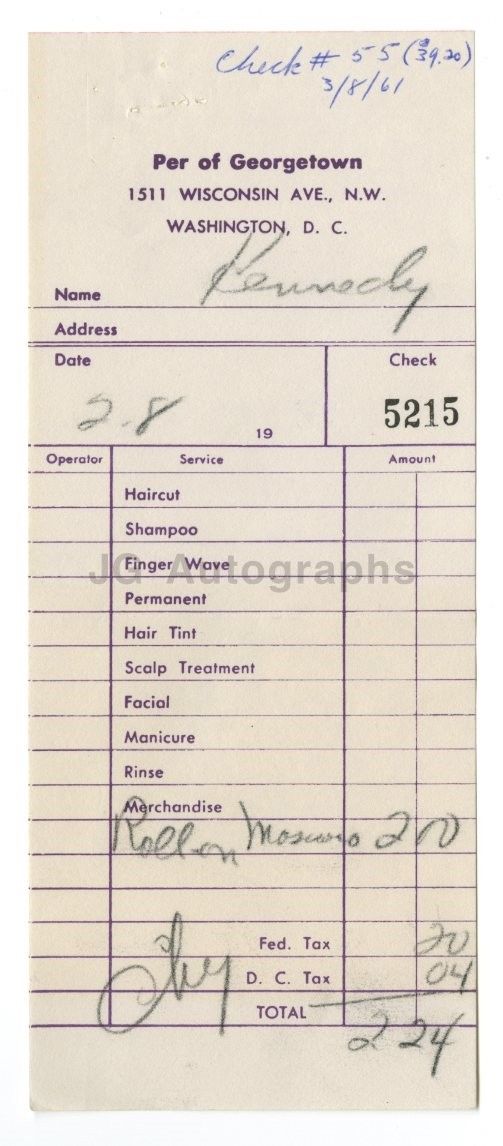 Check # 55 ($39.20)
3/8/61
Per of Georgetown
1511 WISCONSIN AVE., N.W.
WASHINGTON, D. C.
Name Kennedy
Address
Date Check
2-8 19 5215
Operator Service Amount
Haircut
Shampoo
Finger Wave
JG Autographs
Permanent
Hair Tint
Scalp Treatment
Facial
Manicure
Rinse
Merchandise
Roll-on 2 00
Fed. Tax 20
D. C. Tax 04
TOTAL 2 24